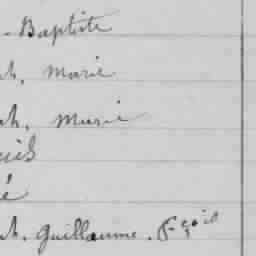 -Baptiste
h. Marie
h. Marie
é
h. Guillaume. Fçois